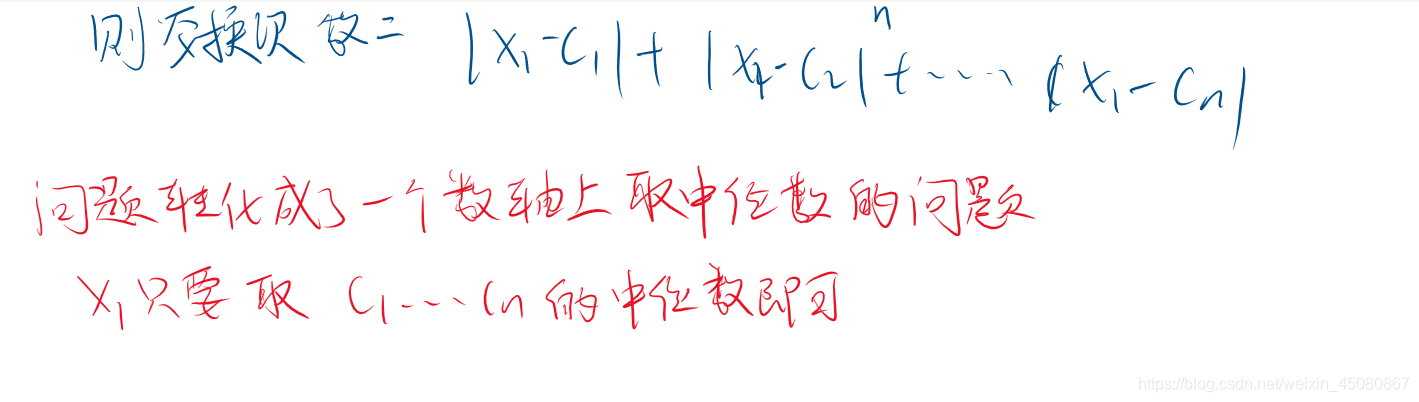 则交换次数= |x₁-C₁|+|x₁-C₂|+…… |x₁-Cₙ|
问题转化成了一个数轴上取中位数的问题
x₁只要取 C₁…Cₙ的中位数即可
https://blog.csdn.net/weixin_45080867